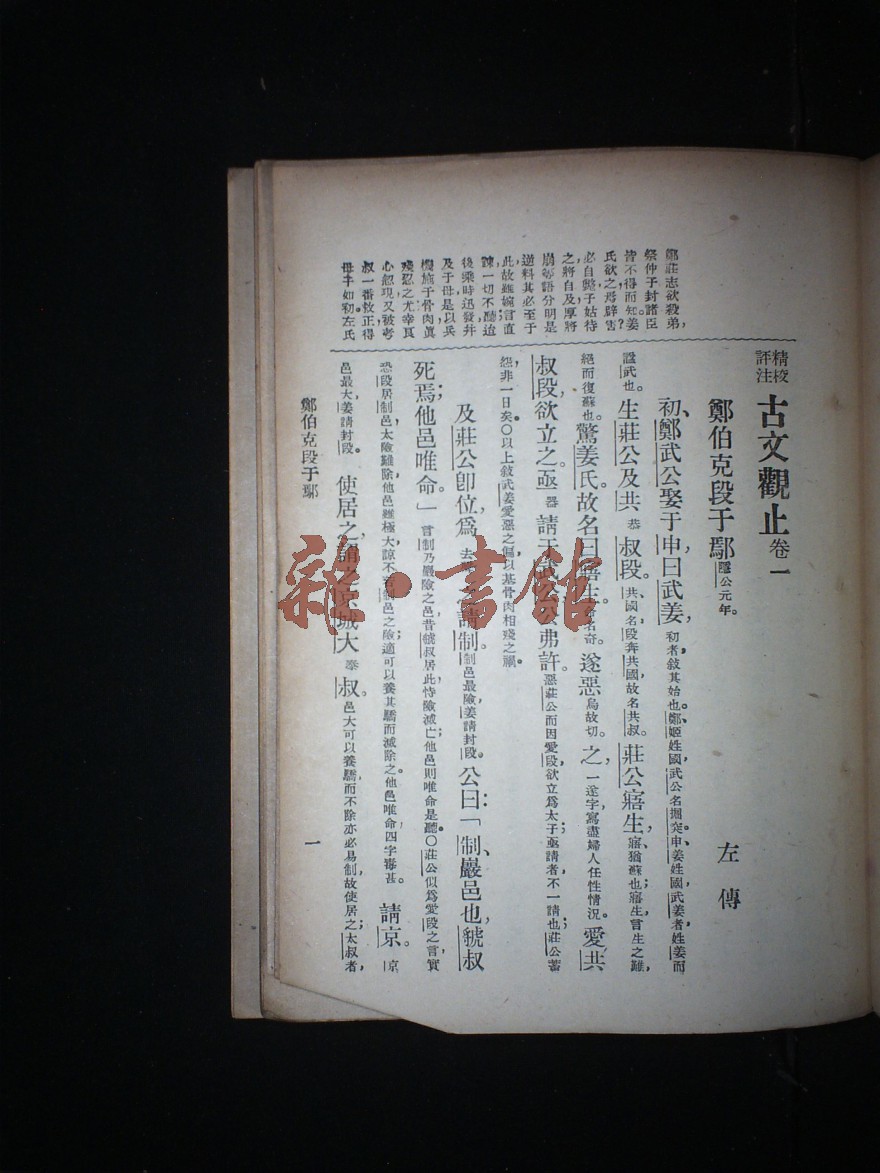 鄭莊志欲殺弟，
祭仲子封諸臣
皆不得而知。姜
氏欲之焉辟害？
必自斃子姑待
之將自及厚將
崩等語分明是
逆料其必至于
此故雖婉言直
諫一切不聽迨
後乘時迅發并
及于母是以兵
機施于骨肉眞
殘忍之尤幸良
心忽現又被考
叔一番救正得
母子如初左氏
精校
評注
古文觀止 卷一
鄭伯克段于鄢 隱公元年。
左傳
初、鄭武公娶于申、曰武姜， 初者敍其始也。鄭、姬姓國，武公名掘突。申、姜姓國，武姜者姓姜而
諡武也。 生莊公及共 恭 叔段。 共國名段奔共國，故名共叔。 莊公寤生， 寤、猶蘇也；寤生言生之難，
絕而復蘇也。 驚姜氏，故名曰寤生， 名奇。 遂惡 烏故切。 之， 一遂字寫盡婦人任性情況。 愛共
叔段，欲立之。亟 器 請于武公，公弗許。 惡莊公而因愛段，欲立爲太子；亟請者，不一請也；莊公蓄
怨，非一日矣。〇以上敍武姜愛惡之偏，以基骨肉相殘之禍。
及莊公卽位，爲 去聲 之請制。 制邑最險，姜請封段。 公曰：「制、巖邑也，虢叔
死焉；他邑唯命。」 言制乃巖險之邑，昔虢叔居此，恃險滅亡；他邑則唯命是聽。〇莊公似爲愛段之言，實
恐段居制邑，太險難除，他邑雖極大，諒不若制邑之險，適可以養其驕而滅除之。他邑唯命四字毒甚。 請京。 京
邑最大，姜請封段。 使居之，謂之京城大 泰 叔。 邑大可以養驕，而不除亦必易制，故使居之；太叔者，
鄭伯克段于鄢
一
雜·書館